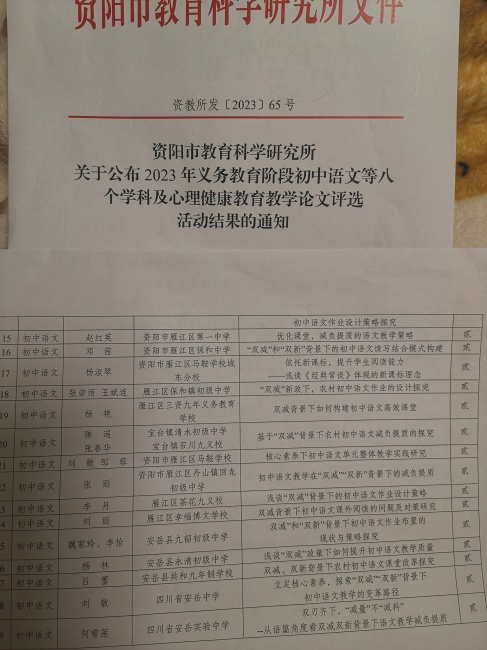 资阳市教育科学研究所文件
资教所发〔2023〕65号
资阳市教育科学研究所
关于公布 2023 年义务教育阶段初中语文等八
个学科及心理健康教育教学论文评选
活动结果的通知
初中语文作业设计策略探究
15 初中语文 赵红英 资阳市雁江区第一中学 优化课堂，减负提质的语文教学策略 贰
16 初中语文 邓茜 资阳市雁江区保和中学 “双减”和“双新”背景下的初中语文读写结合模式构建 贰
17 初中语文 杨淑琴 资阳市雁江区马鞍学校城东分校 依托新课标，提升学生阅读能力
——浅谈《经典常谈》体现的新课标理念 贰
18 初中语文 张崇雨 王斌连 雁江区保和镇初级中学 “双减”新政下，农村初中语文作业的设计探究 贰
19 初中语文 杨艳 雁江区三贤九年义务教育学校 双减背景下如何构建初中语文高效课堂 贰
20 初中语文 陈遥 张春华 宝台镇清水初级中学 宝台镇石川九义校 基于“双减”背景下农村初中语文减负提质的探究 贰
21 初中语文 刘敏 邹蓉 资阳市雁江区马鞍学校 核心素养下初中语文单元整体教学实践研究 贰
2 初中语文 张丽 资阳市雁江区丹山镇回龙初级中学 初中语文教学在“双减”“双新”背景下的减负提质 贰
3 初中语文 李丹 雁江区茶花九义校 浅谈“双减”背景下的初中语文作业设计策略 贰
4 初中语文 刘丽 雁江区幸福博文学校 双减背景下初中语文课外阅读的问题及对策研究 贰
5 初中语文 魏家玲、李怡 安岳县九韶初级中学 “双减”和“双新”背景下初中语文作业布置的
现状与策略探究 贰
6 初中语文 杨林 安岳县永清初级中学 浅谈“双减”政策下如何提升初中语文教学质量 贰
7 初中语文 吕蕾 安岳县共和九年制学校 双减、双新背景下农村初中语文课堂改革探究 贰
8 初中语文 刘敏 四川省安岳中学 立足核心素养，探索“双减”“双新”背景下
初中语文教学的变革路径 贰
9 初中语文 何雪莲 四川省安岳实验中学 双刃齐下，“减量”不“减料”
--从语篇角度看双减双新背景下语文教学减负提质 贰